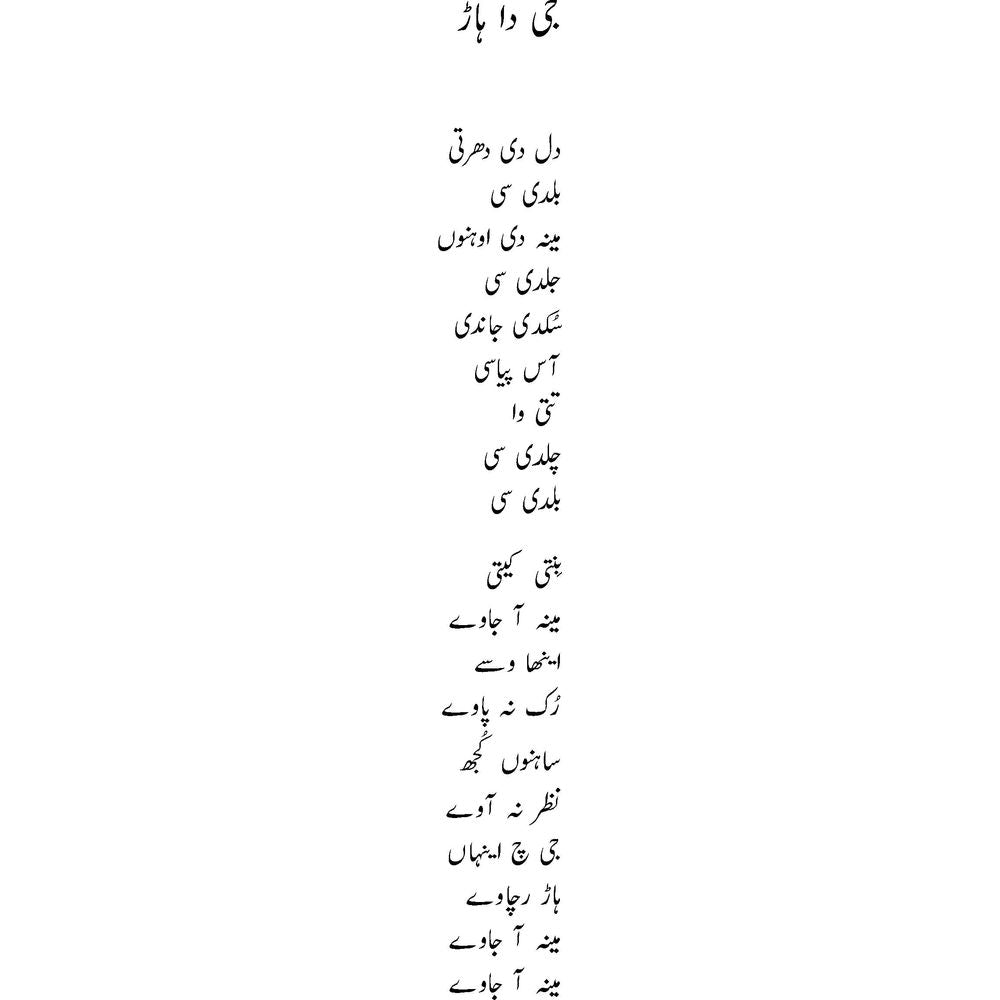 جی دا ہاڑ
دل دی دھرتی
بلدی سی
مینہ دی اوہنوں
جلدی سی
سُکدی جاندی
آس پیاسی
تتی وا
چلدی سی
بلدی سی
بِنتی کیتی
مینہ آ جاوے
اینھا وسے
رُک نہ پاوے
ساہنوں کُجھ
نظر نہ آوے
جی چ اینہاں
ہاڑ رچاوے
مینہ آ جاوے
مینہ آ جاوے